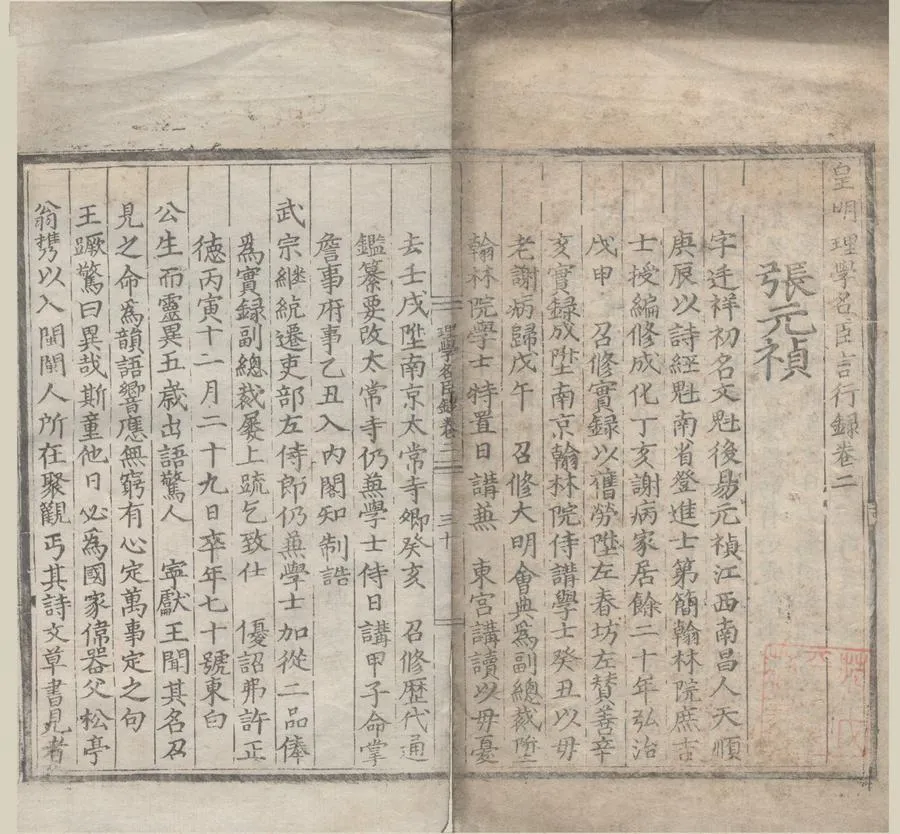 皇明理學名臣言行録卷二
張元禎
字廷祥初名文魁後易元禎江西南昌人天順
庚辰以詩經魁南省登進士第簡翰林院庶吉
士授編修成化丁亥謝病家居餘二十年弘治
戊申　召修實録以舊勞陞左春坊左賛善辛
亥實録成陞南京翰林院侍講學士癸丑以母
老謝病歸戊午　召修大明會典爲副總裁陞
翰林院學士特置日講兼　東宮講讀以毋憂
理學名臣録卷二　三十
去壬戌陞南京太常寺卿癸亥　召修歷代通
鑑纂要改太常寺仍兼學士侍日講甲子命掌
詹事府事乙丑入內閣知制誥
武宗継統遷吏部左侍郎仍兼學士加從二品俸
爲實録副總裁屢上疏乞致仕　優詔弗許正
德丙寅十二月二十九日卒年七十號東白
公生而靈異五歲出語驚人　寧獻王聞其名召
見之命爲韻語響應無窮有心定萬事定之句
王蹶驚曰異哉斯童他日必爲國家偉器父松亭
翁携以入閩閩人所在聚觀丐其詩文草書見者